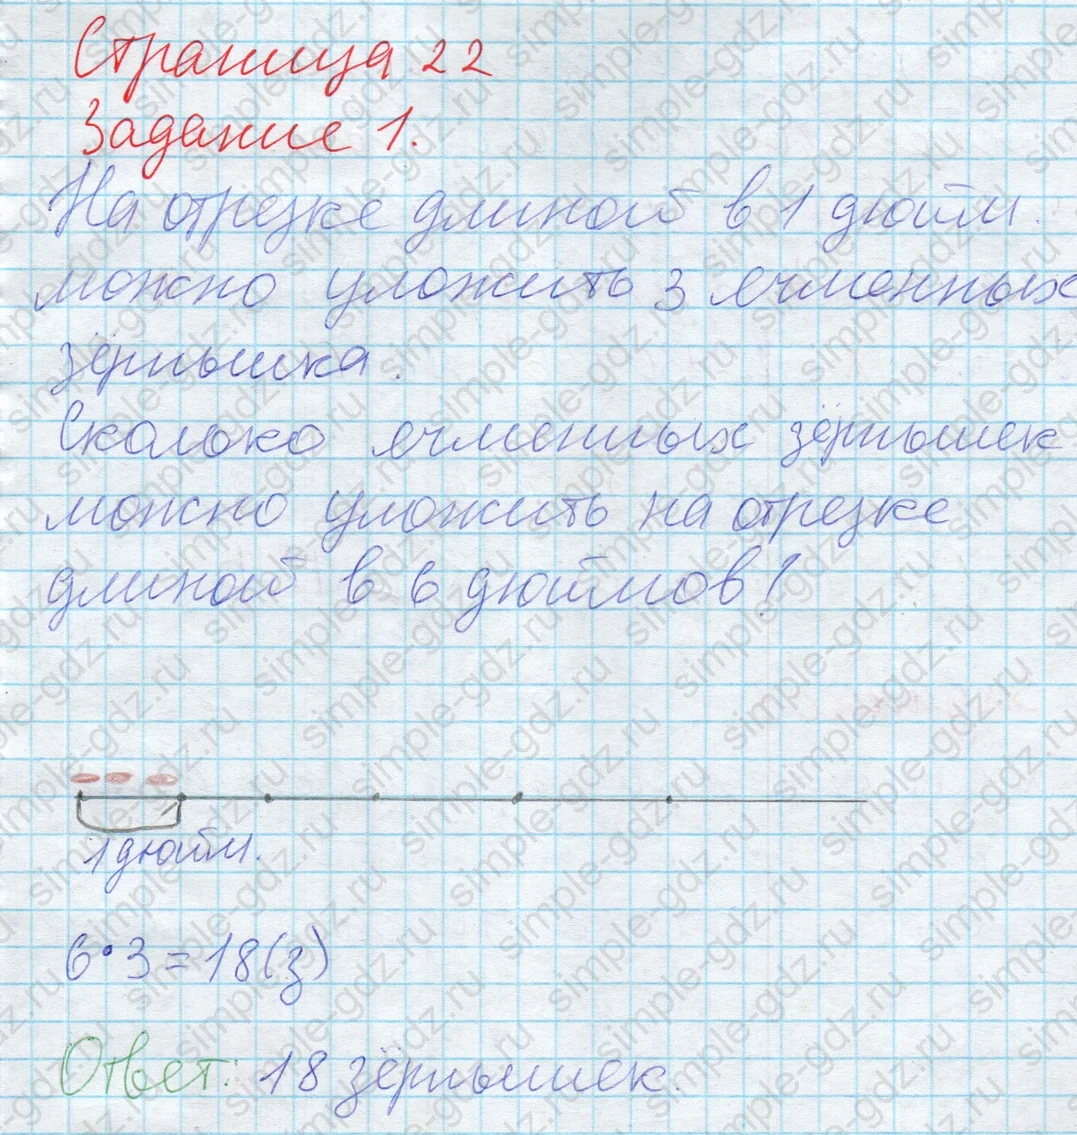 Страница 22
Задание 1.
На отрезке длиной в 1 дюйм.
можно уложить 3 ячменных
зёрнышка.
Сколоко ячменных зёрнышек
можно уложить на отрезке
длиной в 6 дюймов?
1 дюйм.
6·3=18(з)
Ответ: 18 зёрнышек.
simple-gdz.ru